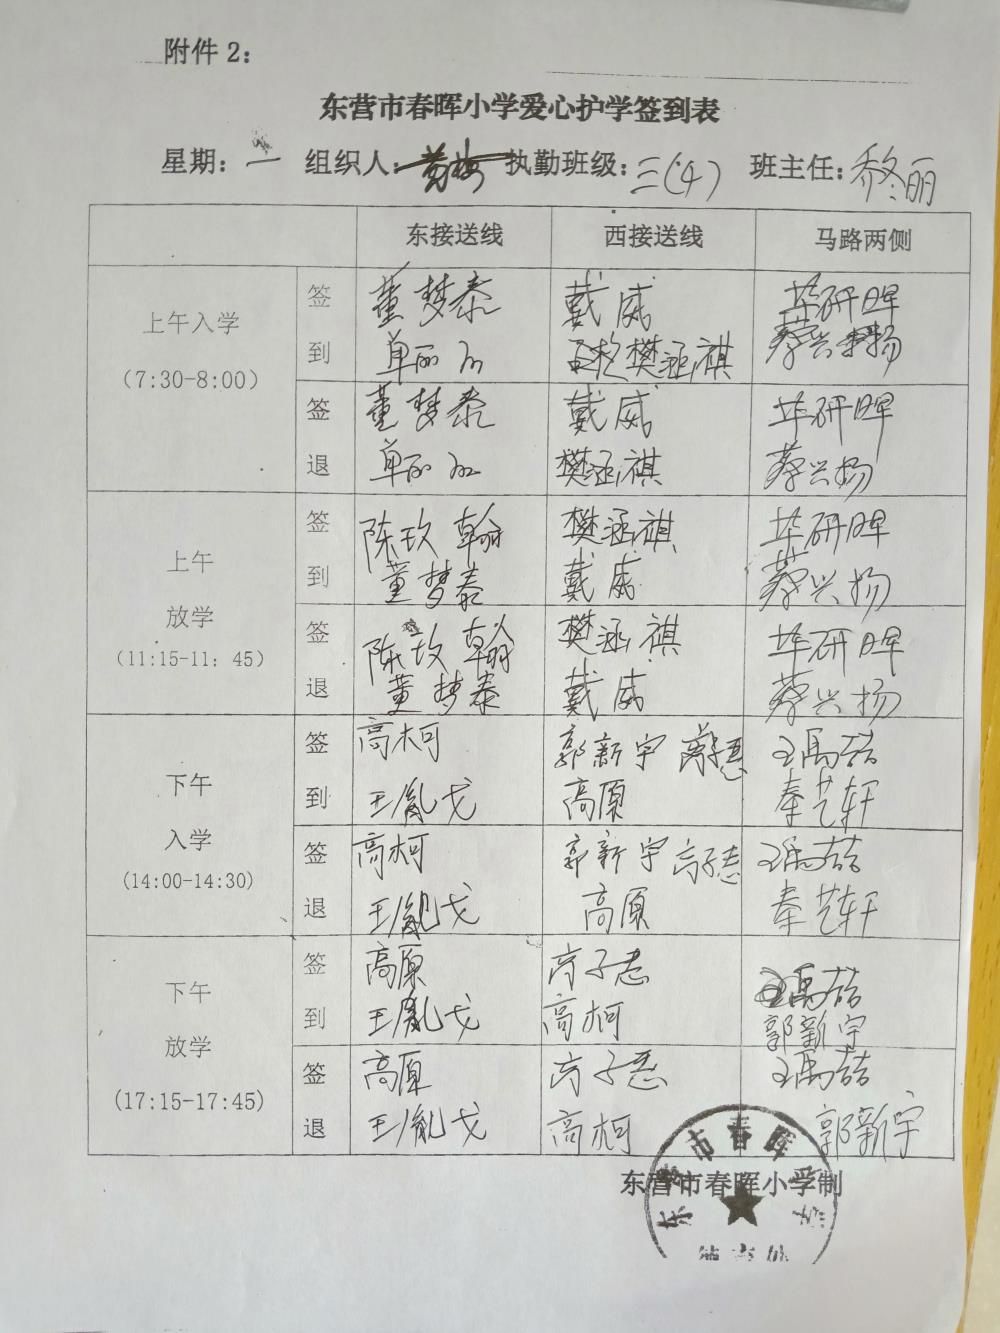 附件 2：
东营市春晖小学爱心护学签到表
星期：一 组织人： 执勤班级：三(4) 班主任：乔冬丽
东接送线 西接送线 马路两侧
上午入学
（7:30-8:00）
签到
董梦泰 戴威 华研晖
单丽 樊涵祺 蔡兴扬
签退
董梦泰 戴威 华研晖
单丽 樊涵祺 蔡兴扬
上午
放学
（11:15-11：45）
签到
陈玫翰 樊涵祺 华研晖
董梦泰 戴威 蔡兴扬
签退
陈玫翰 樊涵祺 华研晖
董梦泰 戴威 蔡兴扬
下午
入学
(14:00-14:30)
签到
高柯 郭新宇 高子惹 王禹喆
王胤戈 高原 秦艺轩
签退
高柯 郭新宇 高子惹 王禹喆
王胤戈 高原 秦艺轩
下午
放学
(17:15-17:45)
签到
高原 高子惹 王禹喆
王胤戈 高柯 郭新宇
签退
高原 高子惹 王禹喆
王胤戈 高柯 郭新宇
东营市春晖小学制